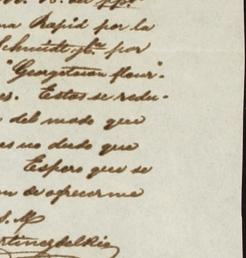 Rapid por la
Schmidt, por
"Georgetown flour".
es. Estas se redu-
del modo que
es no dudo que
Espero que se
de ofrecerme
S. M
rtinez del Rio